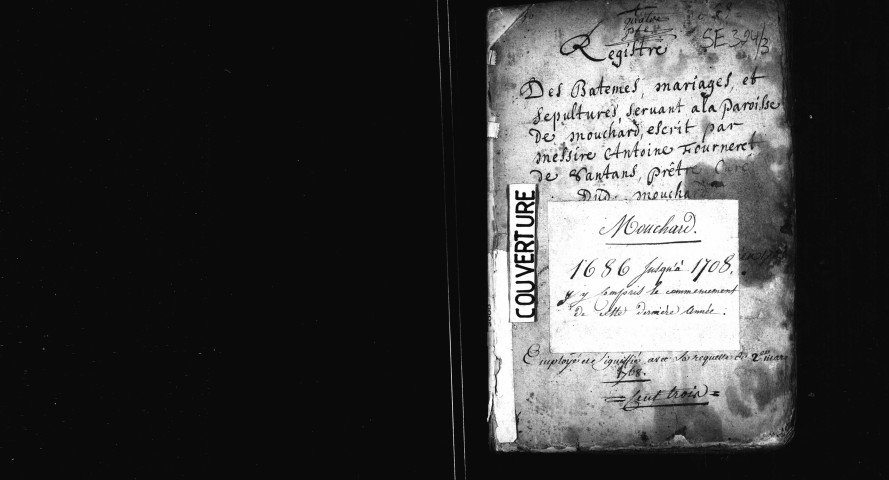 quatre
SE 394/3
Registre
Des Batemes, mariages, et
sepultures, servant a la Paroisse
de mouchard, escrit par
messire Antoine Fourneret
de Santans, prêtre Curé
Dud. mouchard
COUVERTURE
Mouchard.
1686 Jusqu'à 1708.
y compris le commencement
de cette dernière année.
Employé et signiffié avec la requette du 2 mars
1768.
Cent trois